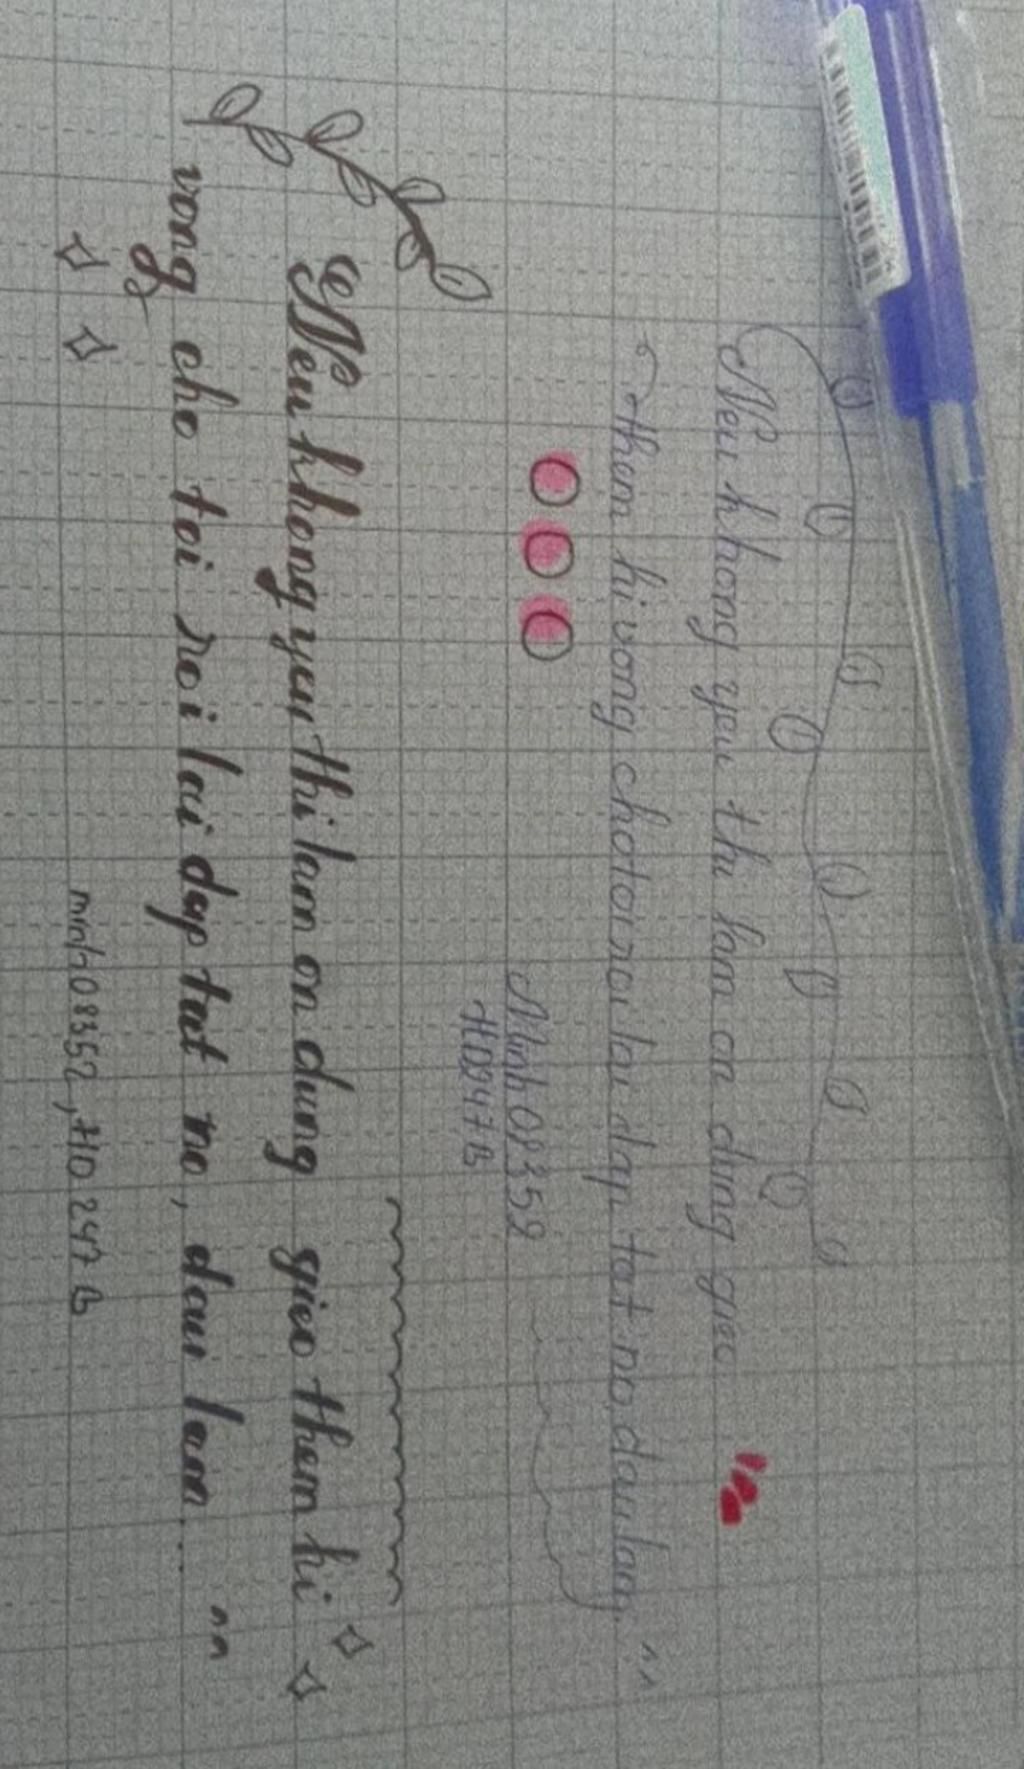 Neu khong yeu thi lam on dung gieo
them hi vong cho toi roi lai dap tat no, dau lam.
Minh08352
HD247B
Neu khong yeu thi lam on dung gieo them hi
vong cho toi roi lai dap tat no, dau lam...
minh08352, HD247B